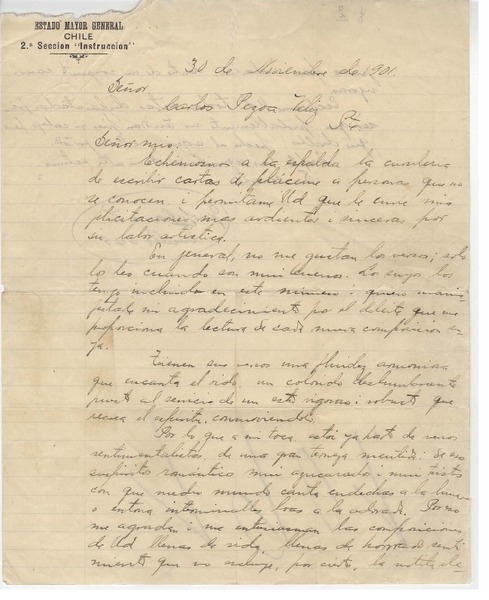 ESTADO MAYOR GENERAL
CHILE
2.ª Seccion "Instruccion"
30 de Noviembre de 1901.
Señor
Carlos Pezoa Véliz
Pte.
Señor mio:
Echémosnos a la espalda la
de escribir cartas de pláceme a personas que no
se conocen i permítame Ud que le envie mis
felicitaciones mas ardientes i sinceras por
su labor artística.
En jeneral, no me gustan los versos; solo
los leo cuando son mui buenos. Los suyos los
tengo incluidos en este número i quiero mani-
festarle mi agradecimiento por el deleite que me
proporciona la lectura de cada nueva composicion su-
ya.
Tienen sus versos una fluidez armoniosa
que encanta el oido, un colorido deslumbrante
puesto al servicio de un estro vigoroso i robusto que
recrea el espíritu, conmoviéndolo.
Por lo que a mí toca, estoi ya harto de versos
sentimentalistas, de una gran terneza mentida; de esos
romántico mui azucarado i mui triston
con que medio mundo canta endechas a la luna
o entona interminables loas a la adorada. Por eso
me agradan i me entusiasman las composiciones
de Ud llenas de vida, llenas de honrado senti-
miento que no escluye, por cierto, la nota